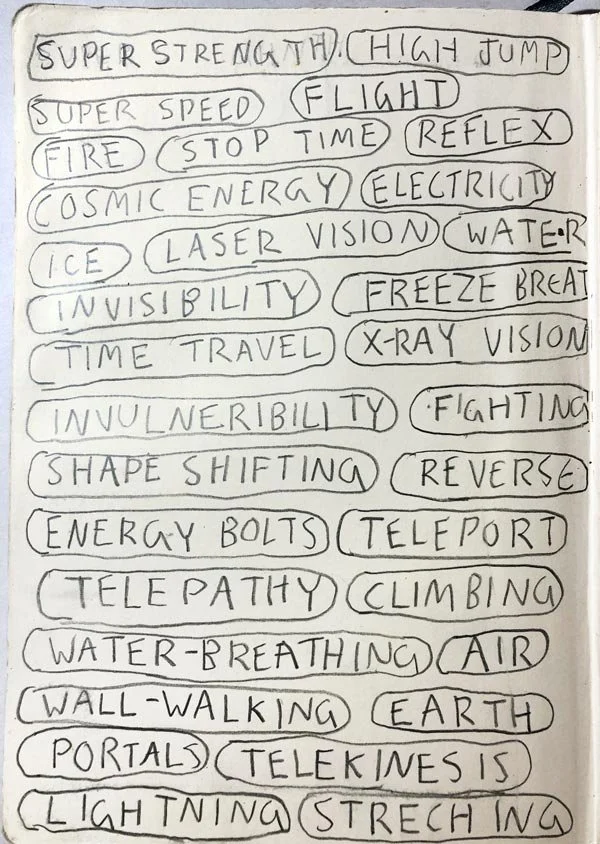 SUPER STRENGTH. HIGH JUMP
SUPER SPEED FLIGHT
FIRE STOP TIME REFLEX
COSMIC ENERGY ELECTRICITY
ICE LASER VISION WATER
INVISIBILITY FREEZE BREAT
TIME TRAVEL X-RAY VISION
INVULNERIBILITY FIGHTING
SHAPE SHIFTING REVERSE
ENERGY BOLTS TELEPORT
TELEPATHY CLIMBING
WATER-BREATHING AIR
WALL-WALKING EARTH
PORTALS TELEKINESIS
LIGHTNING STRECHING